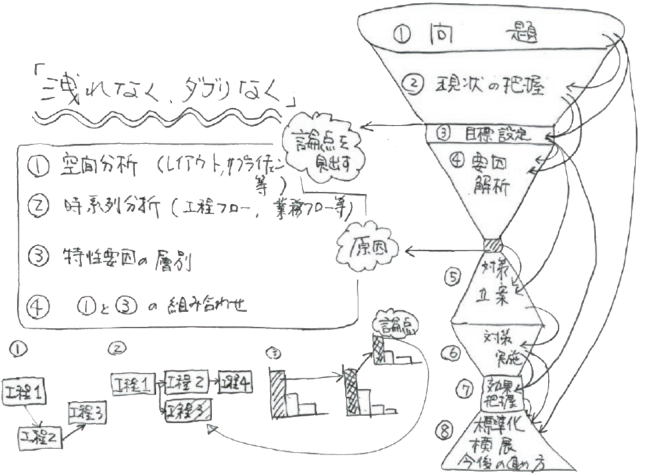 「洩れなく、ダブりなく」
① 空间分析 (レイアウト,サプライチェーン
等)
② 時系列分析 (工程フロー, 業務フロー等)
③ 特性要因の層別
④ ①と③の組み合わせ
論点を
見出す
原因
① 問題
② 現状の把握
③ 目標設定
④ 要因
解析
⑤ 対策
立案
⑥ 対策
実施
⑦ 効果
把握
⑧ 標準化
横展
今後の進め方
①
工程1
工程2
工程3
②
工程1
工程2
工程4
工程3
③
論点